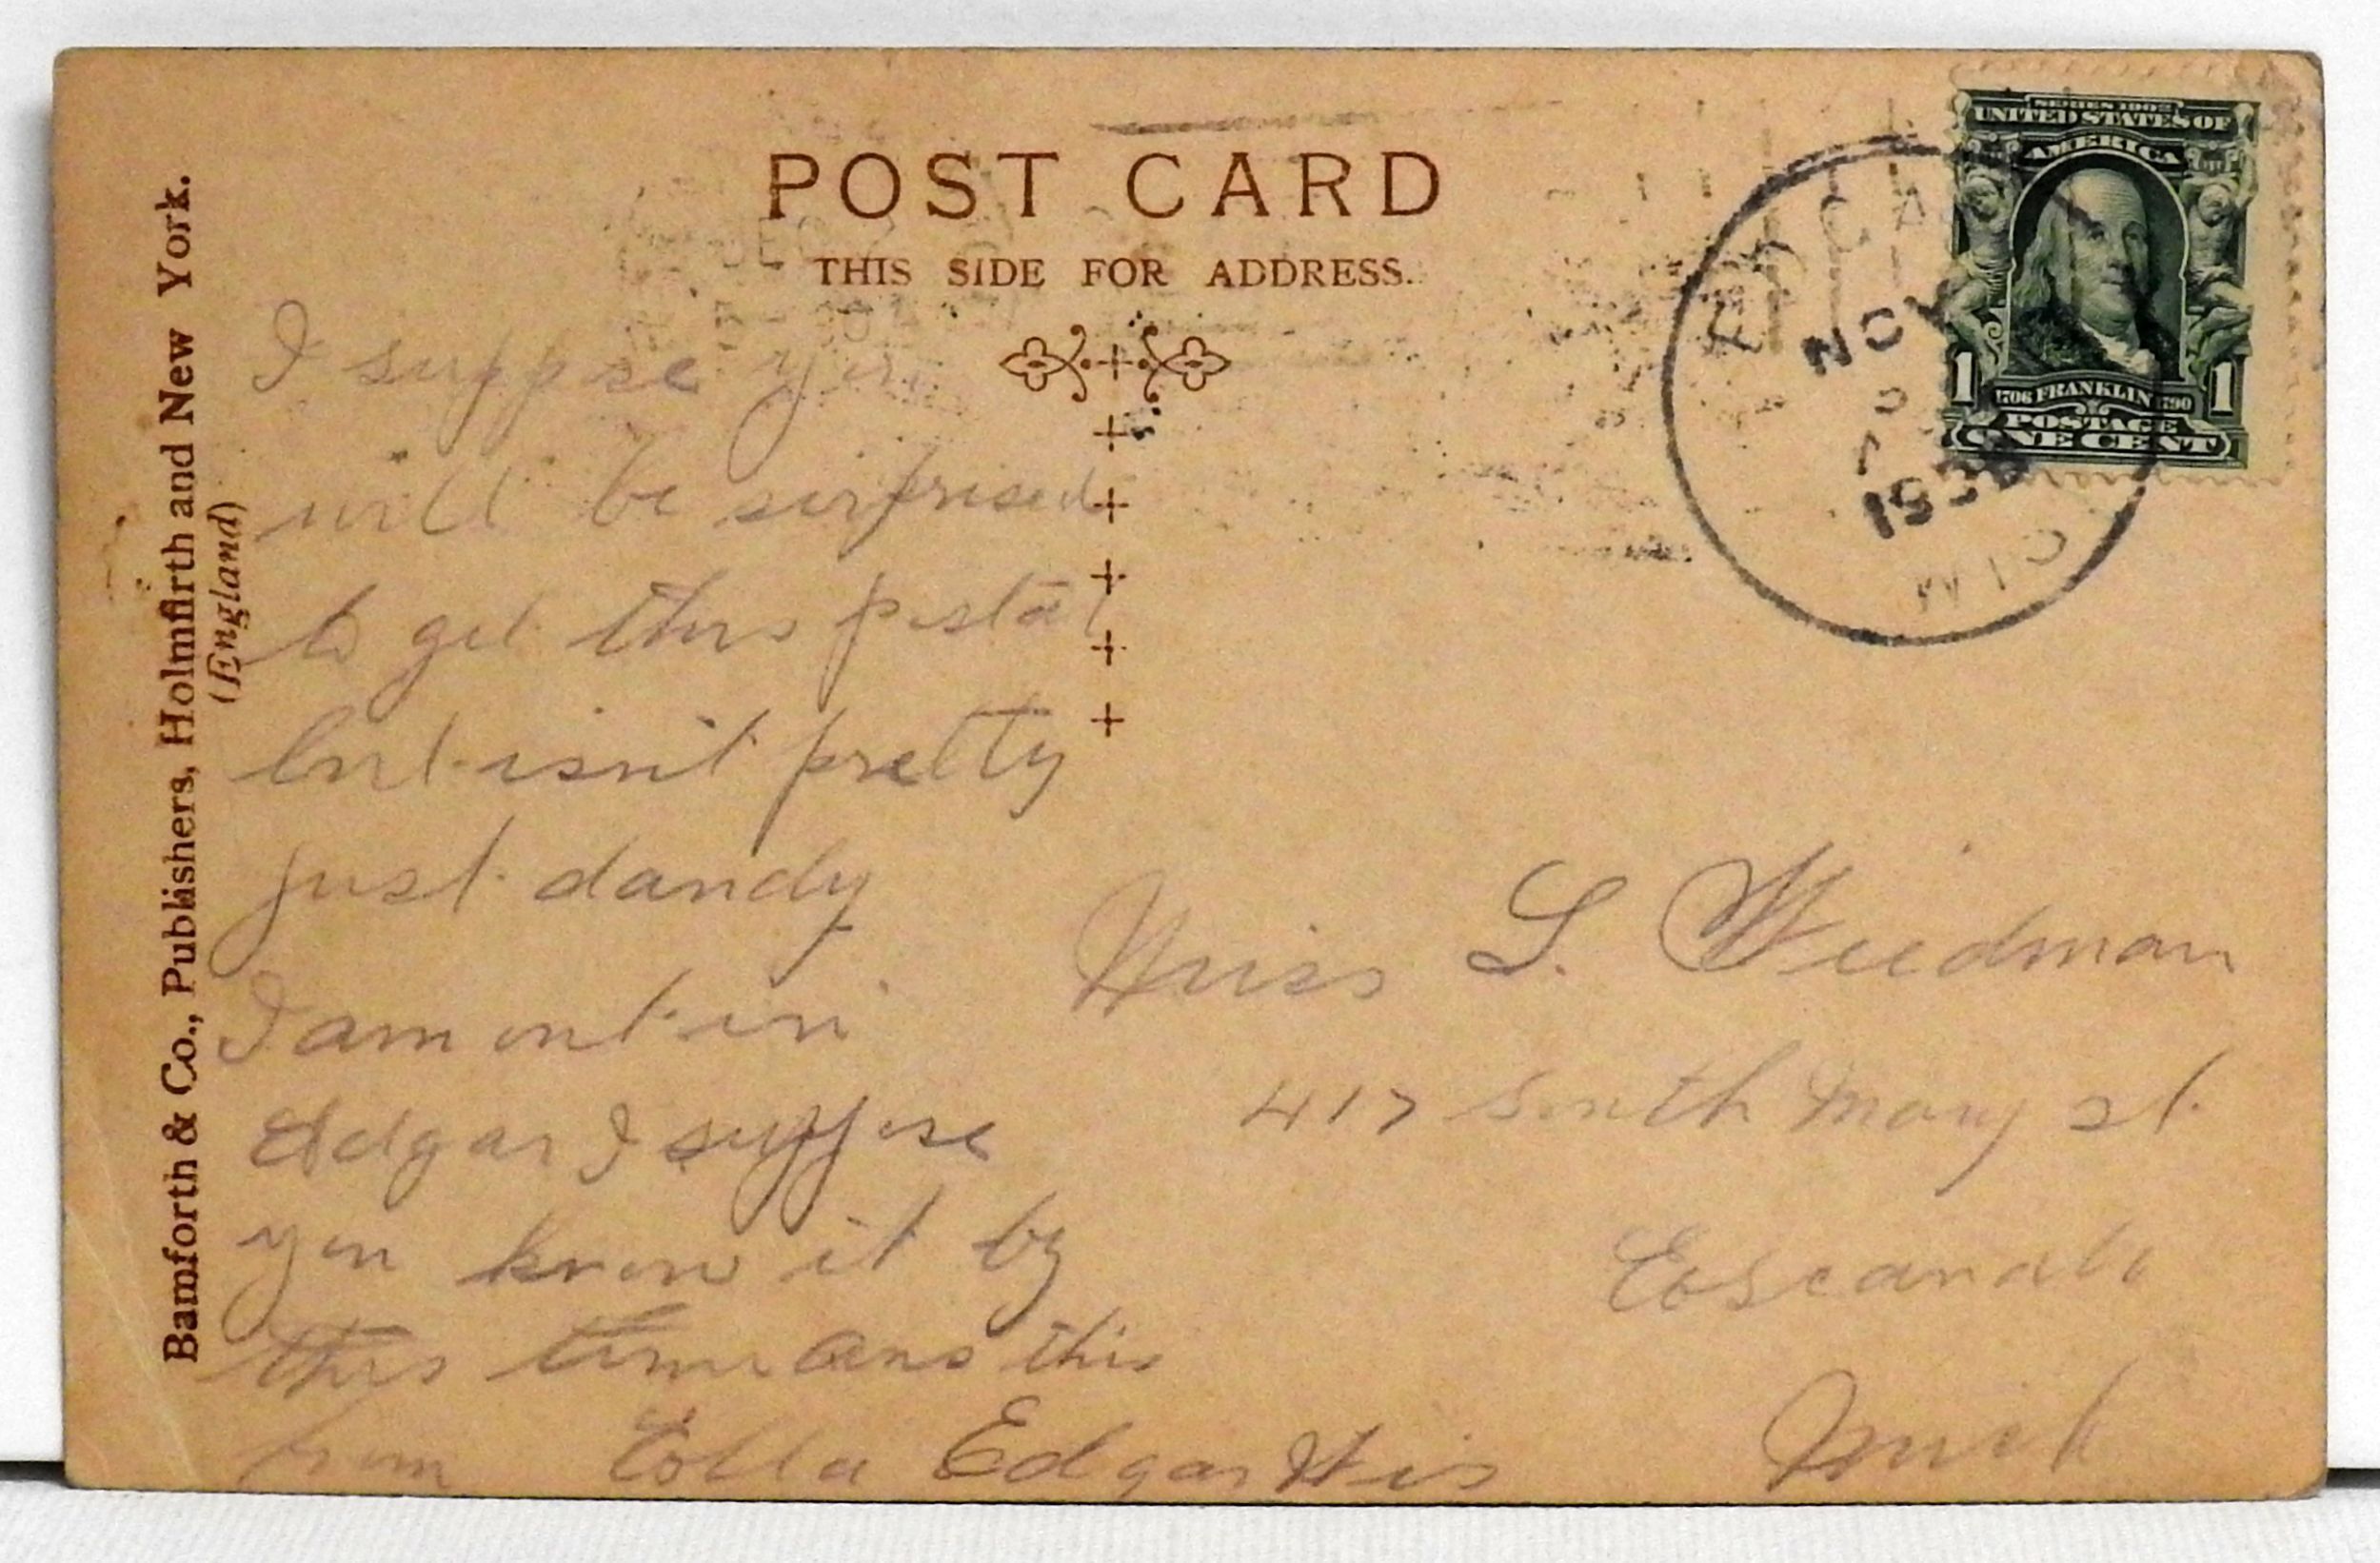 POST CARD
THIS SIDE FOR ADDRESS.
Bamforth & Co., Publishers, Holmfirth and New York.
(England)
SERIES 1902
UNITED STATES OF
AMERICA
1706 FRANKLIN 1790
1 1
POSTAGE
ONE CENT
NOV
MICH
DEC
I suppose you
will be sirprised
to get this postal
but isn't pretty
just dandy
I am out in
Edgar I suppose
you know it by
this time ans this
from Ella Edgar Wis
Miss L. Weidman
417 South Mary st.
Escanaba
Mich